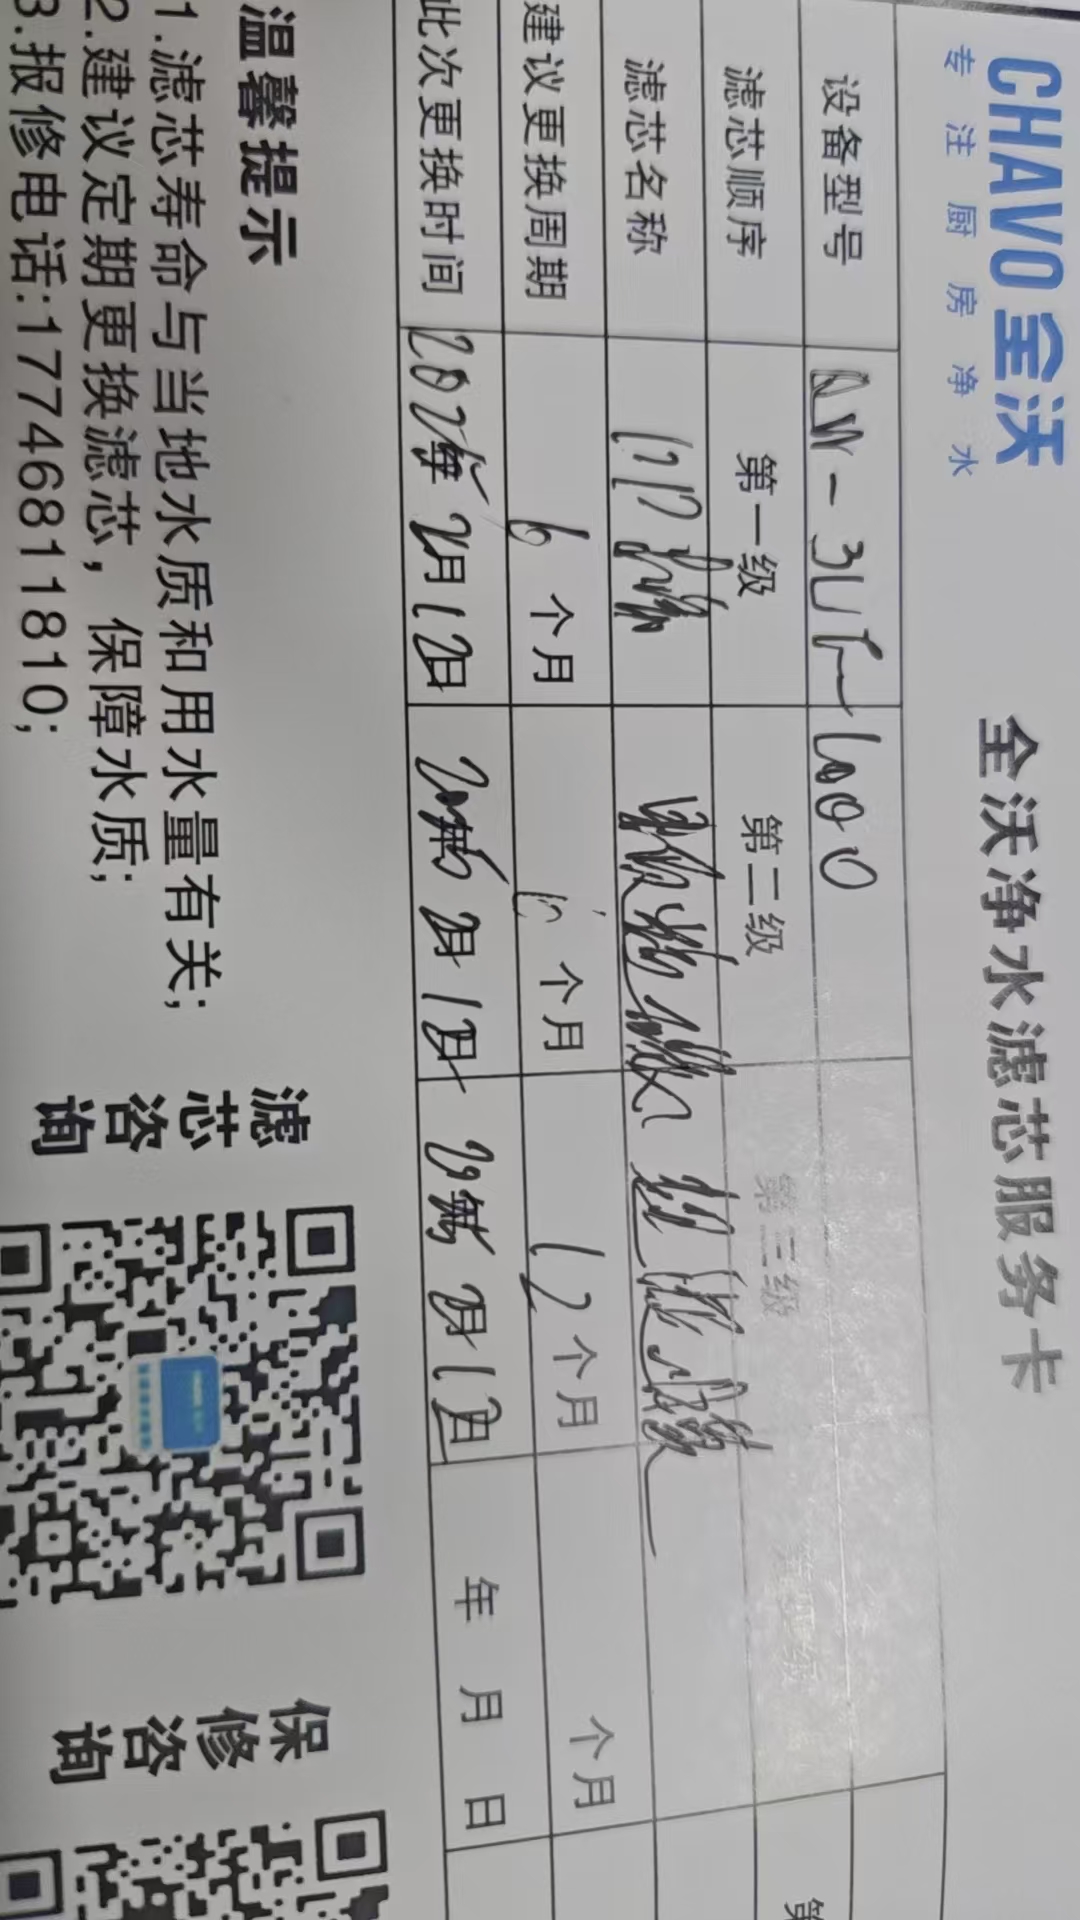 CHAVO 全沃
专注厨房净水
全沃净水滤芯服务卡
设备型号
滤芯顺序 第一级 第二级 第三级 第四级 第
滤芯名称 PP棉 颗粒活性炭 超滤
建议更换周期 6个月 6个月 12个月 个月
此次更换时间 月1日 月1日 月1日 年 月 日
温馨提示
1.滤芯寿命与当地水质和用水量有关;
2.建议定期更换滤芯，保障水质;
3.报修电话:17746811810;
滤芯咨询
保修咨询